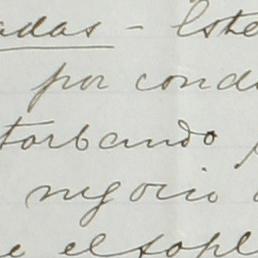 adas - Este
por condu
torbando
negocio
e el sopl